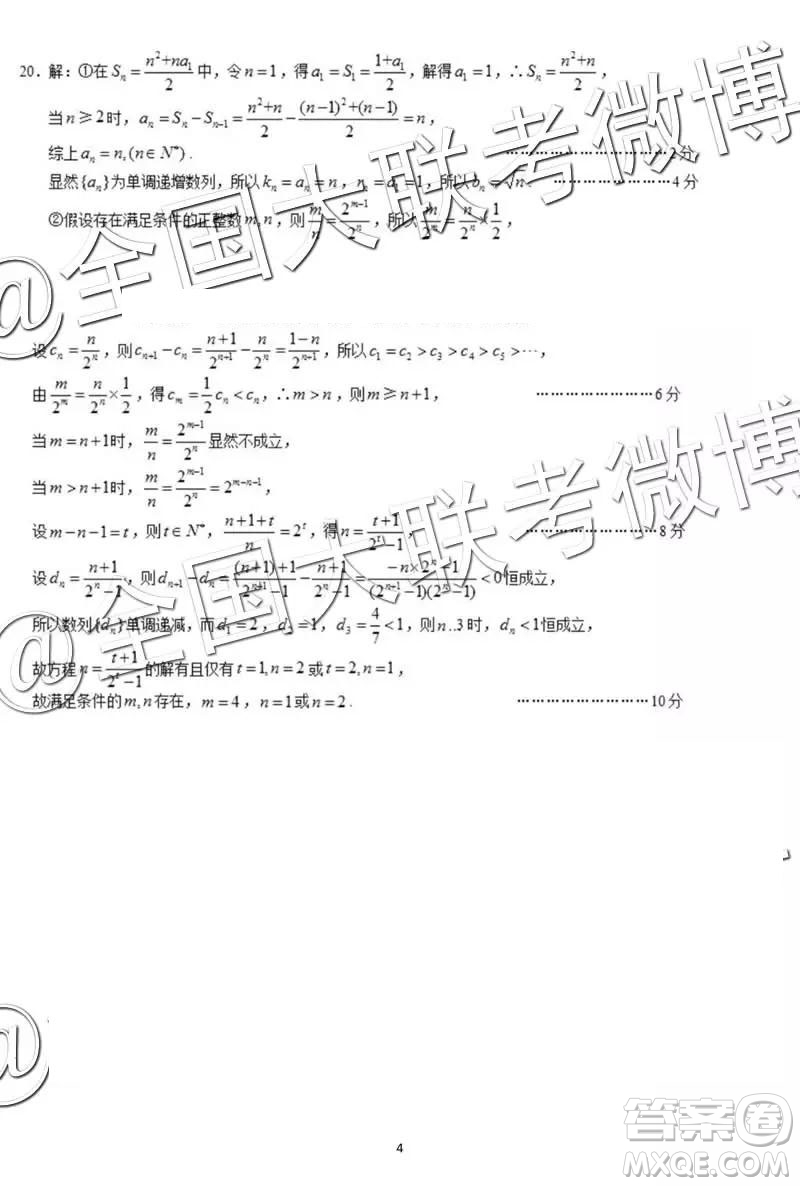 20．解：①在 Sₙ = (n²+na₁)/2 中，令 n=1，得 a₁=S₁=(1+a₁)/2，解得 a₁=1，∴ Sₙ=(n²+n)/2，
当 n≥2 时，aₙ=Sₙ−Sₙ₋₁=(n²+n)/2−((n−1)²+(n−1))/2=n，
综上 aₙ=n,(n∈N*)．………………………2分
显然{aₙ}为单调递增数列，所以 kₙ=aₙ=n，rₙ=a₁=1，所以 bₙ=√n．…………………4分
②假设存在满足条件的正整数 m,n，则 m/n=2^(m−1)/2^n，所以 m/2^m=n/2^n×1/2，
设 cₙ=n/2^n，则 cₙ₊₁−cₙ=(n+1)/2^(n+1)−n/2^n=(1−n)/2^(n+1)，所以 c₁=c₂>c₃>c₄>c₅>⋯，
由 m/2^m=n/2^n×1/2，得 cₘ=1/2cₙ<cₙ，∴m>n，则 m≥n+1，……………………6分
当 m=n+1 时，m/n=2^(m−1)/2^n 显然不成立，
当 m>n+1 时，m/n=2^(m−1)/2^n=2^(m−n−1)，
设 m−n−1=t，则 t∈N*，(n+1+t)/n=2^t，得 n=(t+1)/(2^t−1)，……………………8分
设 dₙ=(n+1)/(2^n−1)，则 dₙ₊₁−dₙ=((n+1)+1)/(2^(n+1)−1)−(n+1)/(2^n−1)=(−n×2^n−1)/((2^(n+1)−1)(2^n−1))<0恒成立，
所以数列{dₙ}单调递减，而 d₁=2，d₂=1，d₃=4/7<1，则 n..3 时，dₙ<1恒成立，
故方程 n=(t+1)/(2^t−1) 的解有且仅有 t=1,n=2 或 t=2,n=1，
故满足条件的 m,n 存在，m=4，n=1或 n=2．……………………10分
@全国大联考微博
@全国大联考微博
@
4
答案卷
MXQE.COM